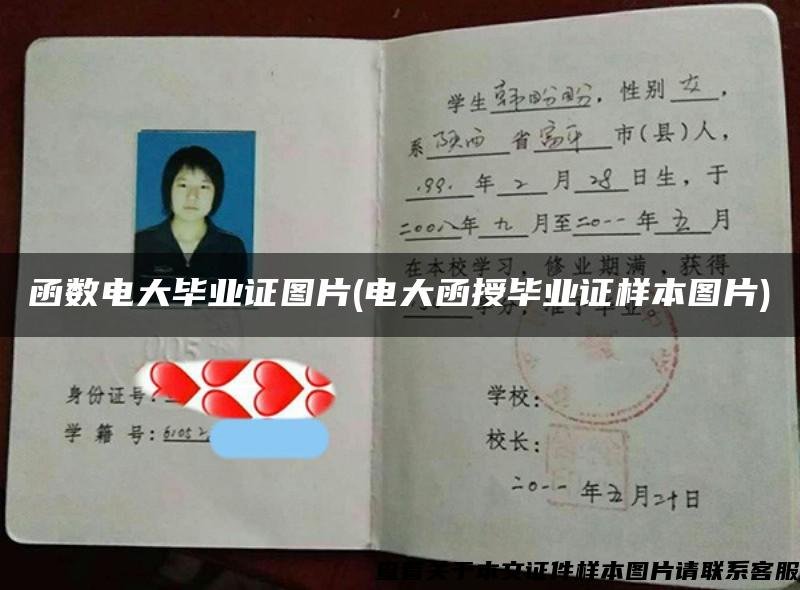 学生韩盼盼，性别女，
系陕西省富平市(县)人，
1991年2月28日生，于
二00八年九月至二0一一年五月
在本校学习，修业期满，获得
学分，准予毕业。
函数电大毕业证图片(电大函授毕业证样本图片)
身份证号：
学籍号：6105
学校：
校长：
二0一一年五月二十日
查看关于本文证件样本图片请联系客服